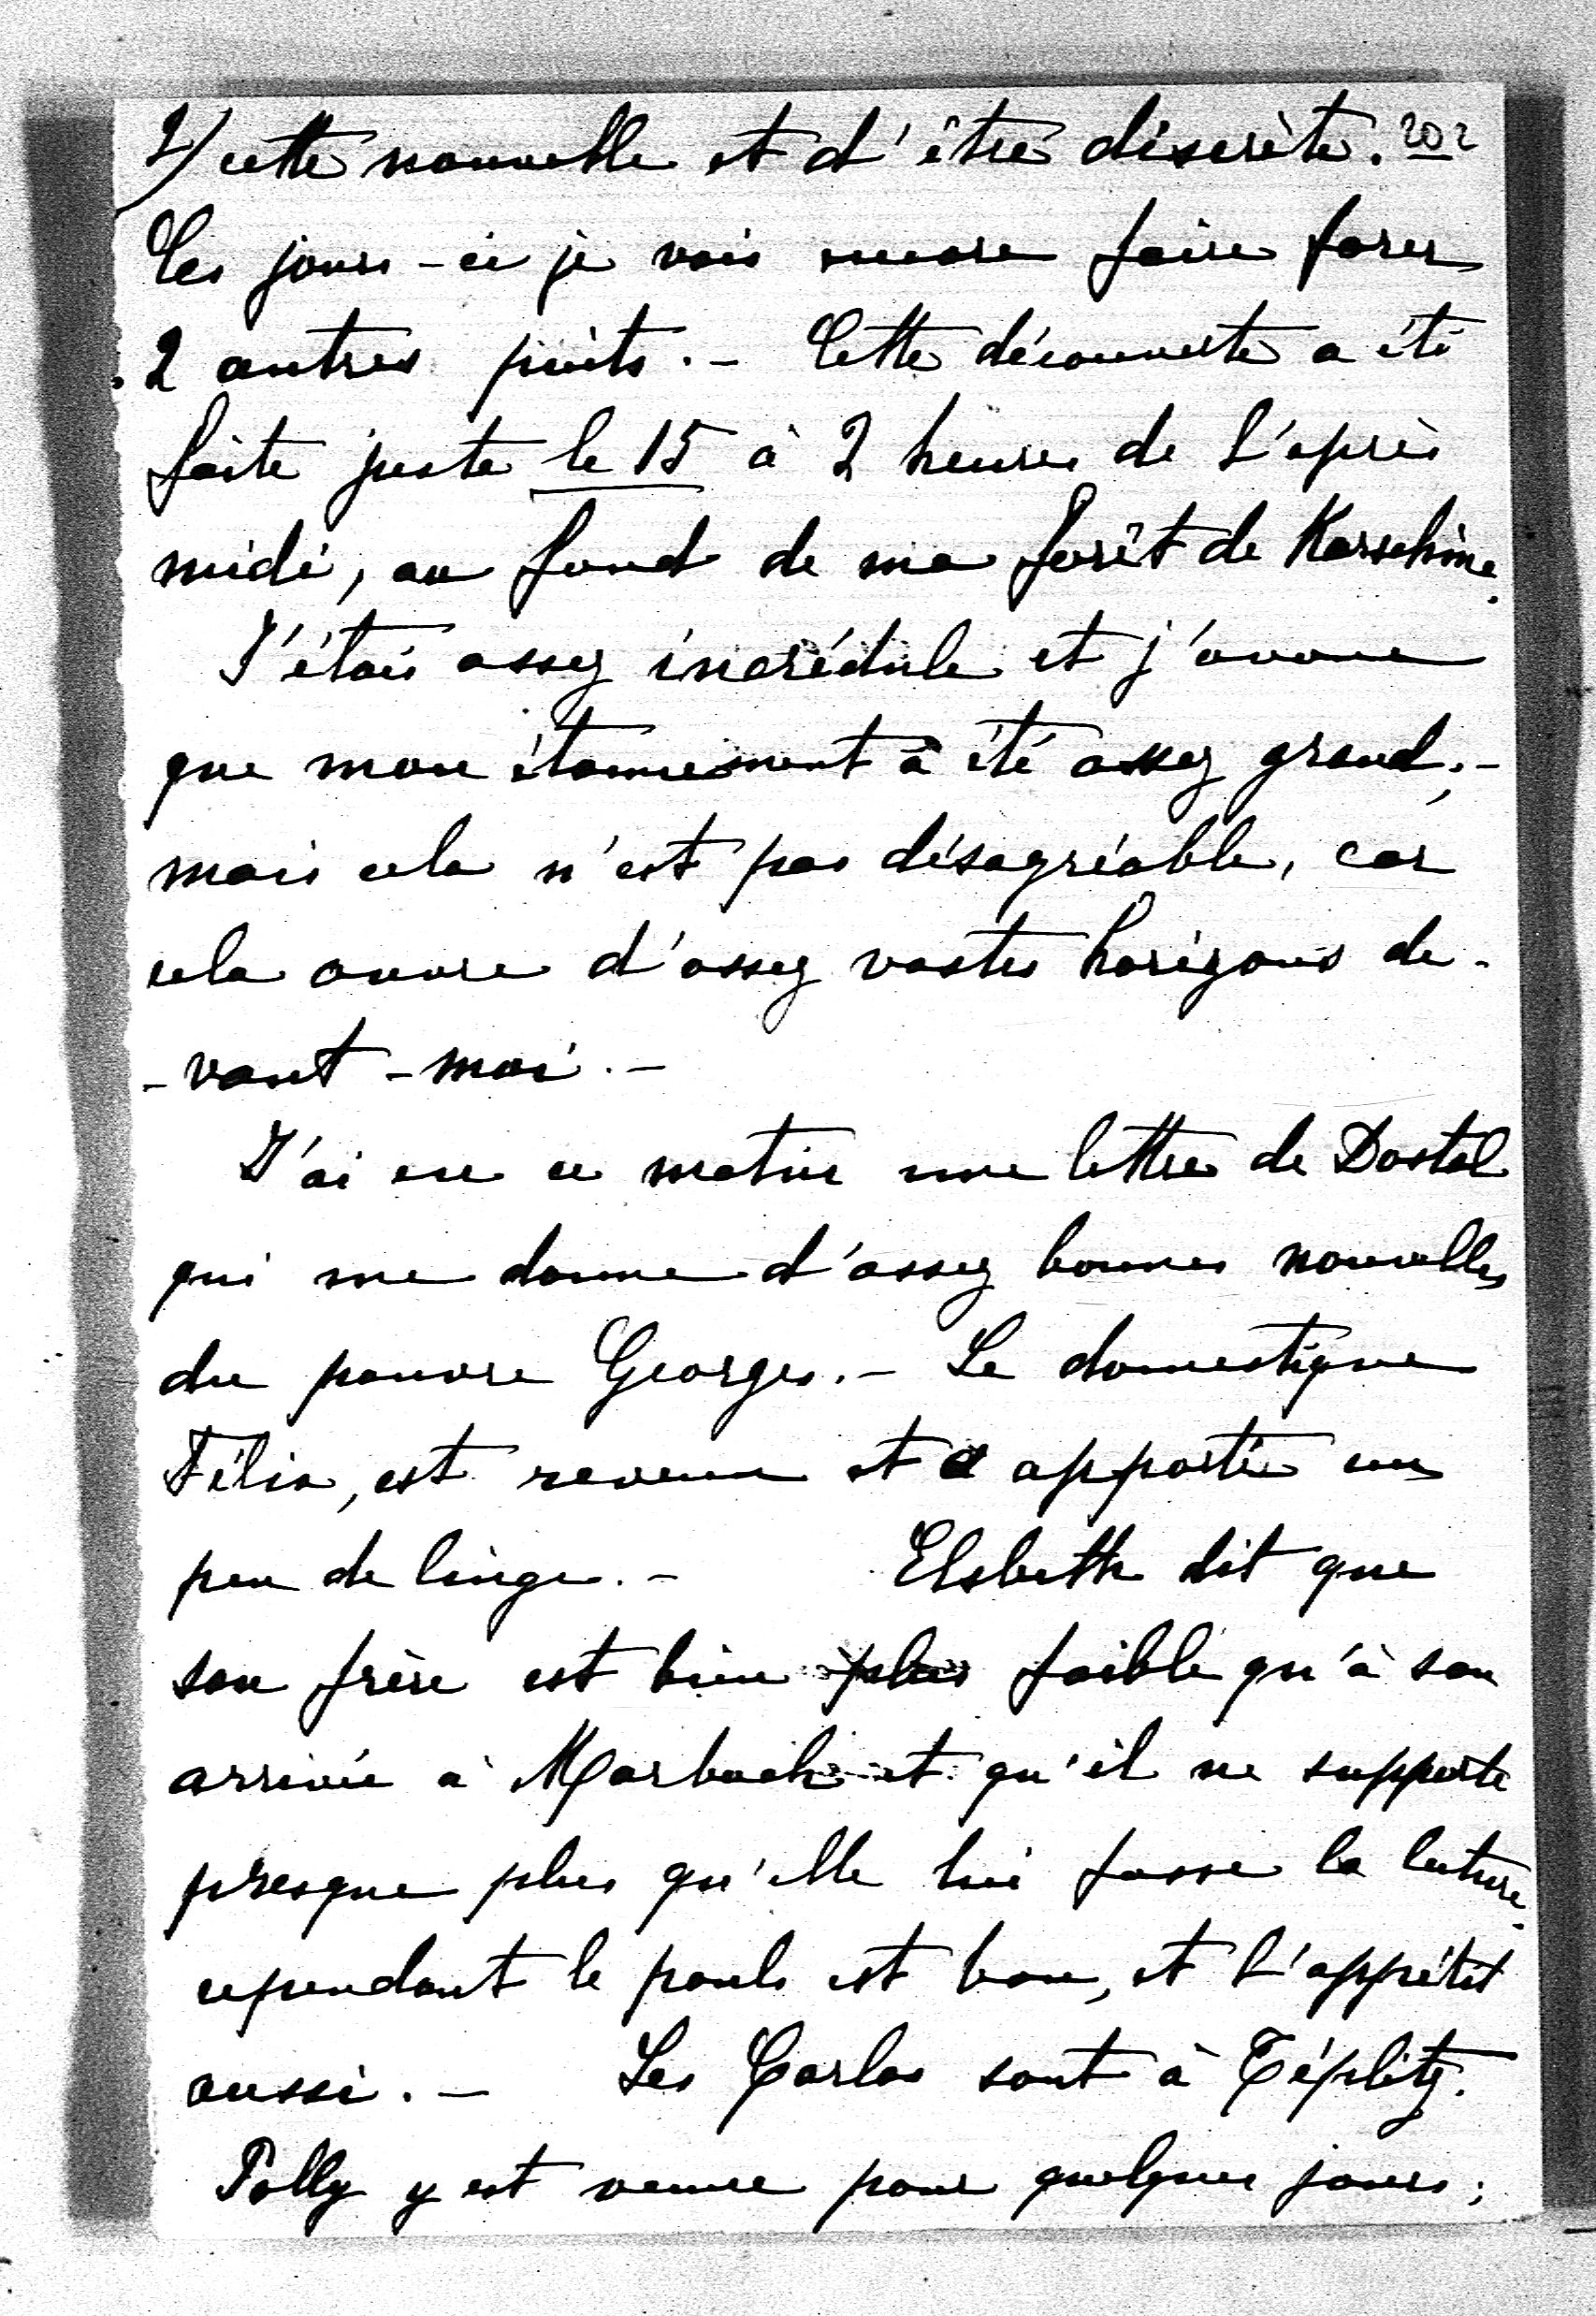 2/ cette nouvelle et d'être discrète. 202
Ces jours-ci je vais encore faire forer
2 autres puits. - Cette découverte a été
faite juste le 15 à 2 heures de l'après
midi, au fond de ma forêt de Karschine.
J'étais assez incrédule et j'avoue
que mon étonnement a été assez grand; -
mais cela n'est pas désagréable, car
cela ouvre d'assez vastes horizons de-
-vant-moi. -
J'ai eu ce matin une lettre de Dostal
qui me donne d'assez bonnes nouvelles
du pauvre Georges. - Le domestique
Félix, est revenu et a apporté un
peu de linge. - Elsbeth dit que
son frère est bien plus faible qu'à son
arrivée à Marbach et qu'il ne supporte
presque plus qu'elle lui fasse la lecture.
cependant le pouls est bon, et l'appétit
aussi. - Les Carlos sont à Téplitz.
Polly y est venue pour quelques jours;